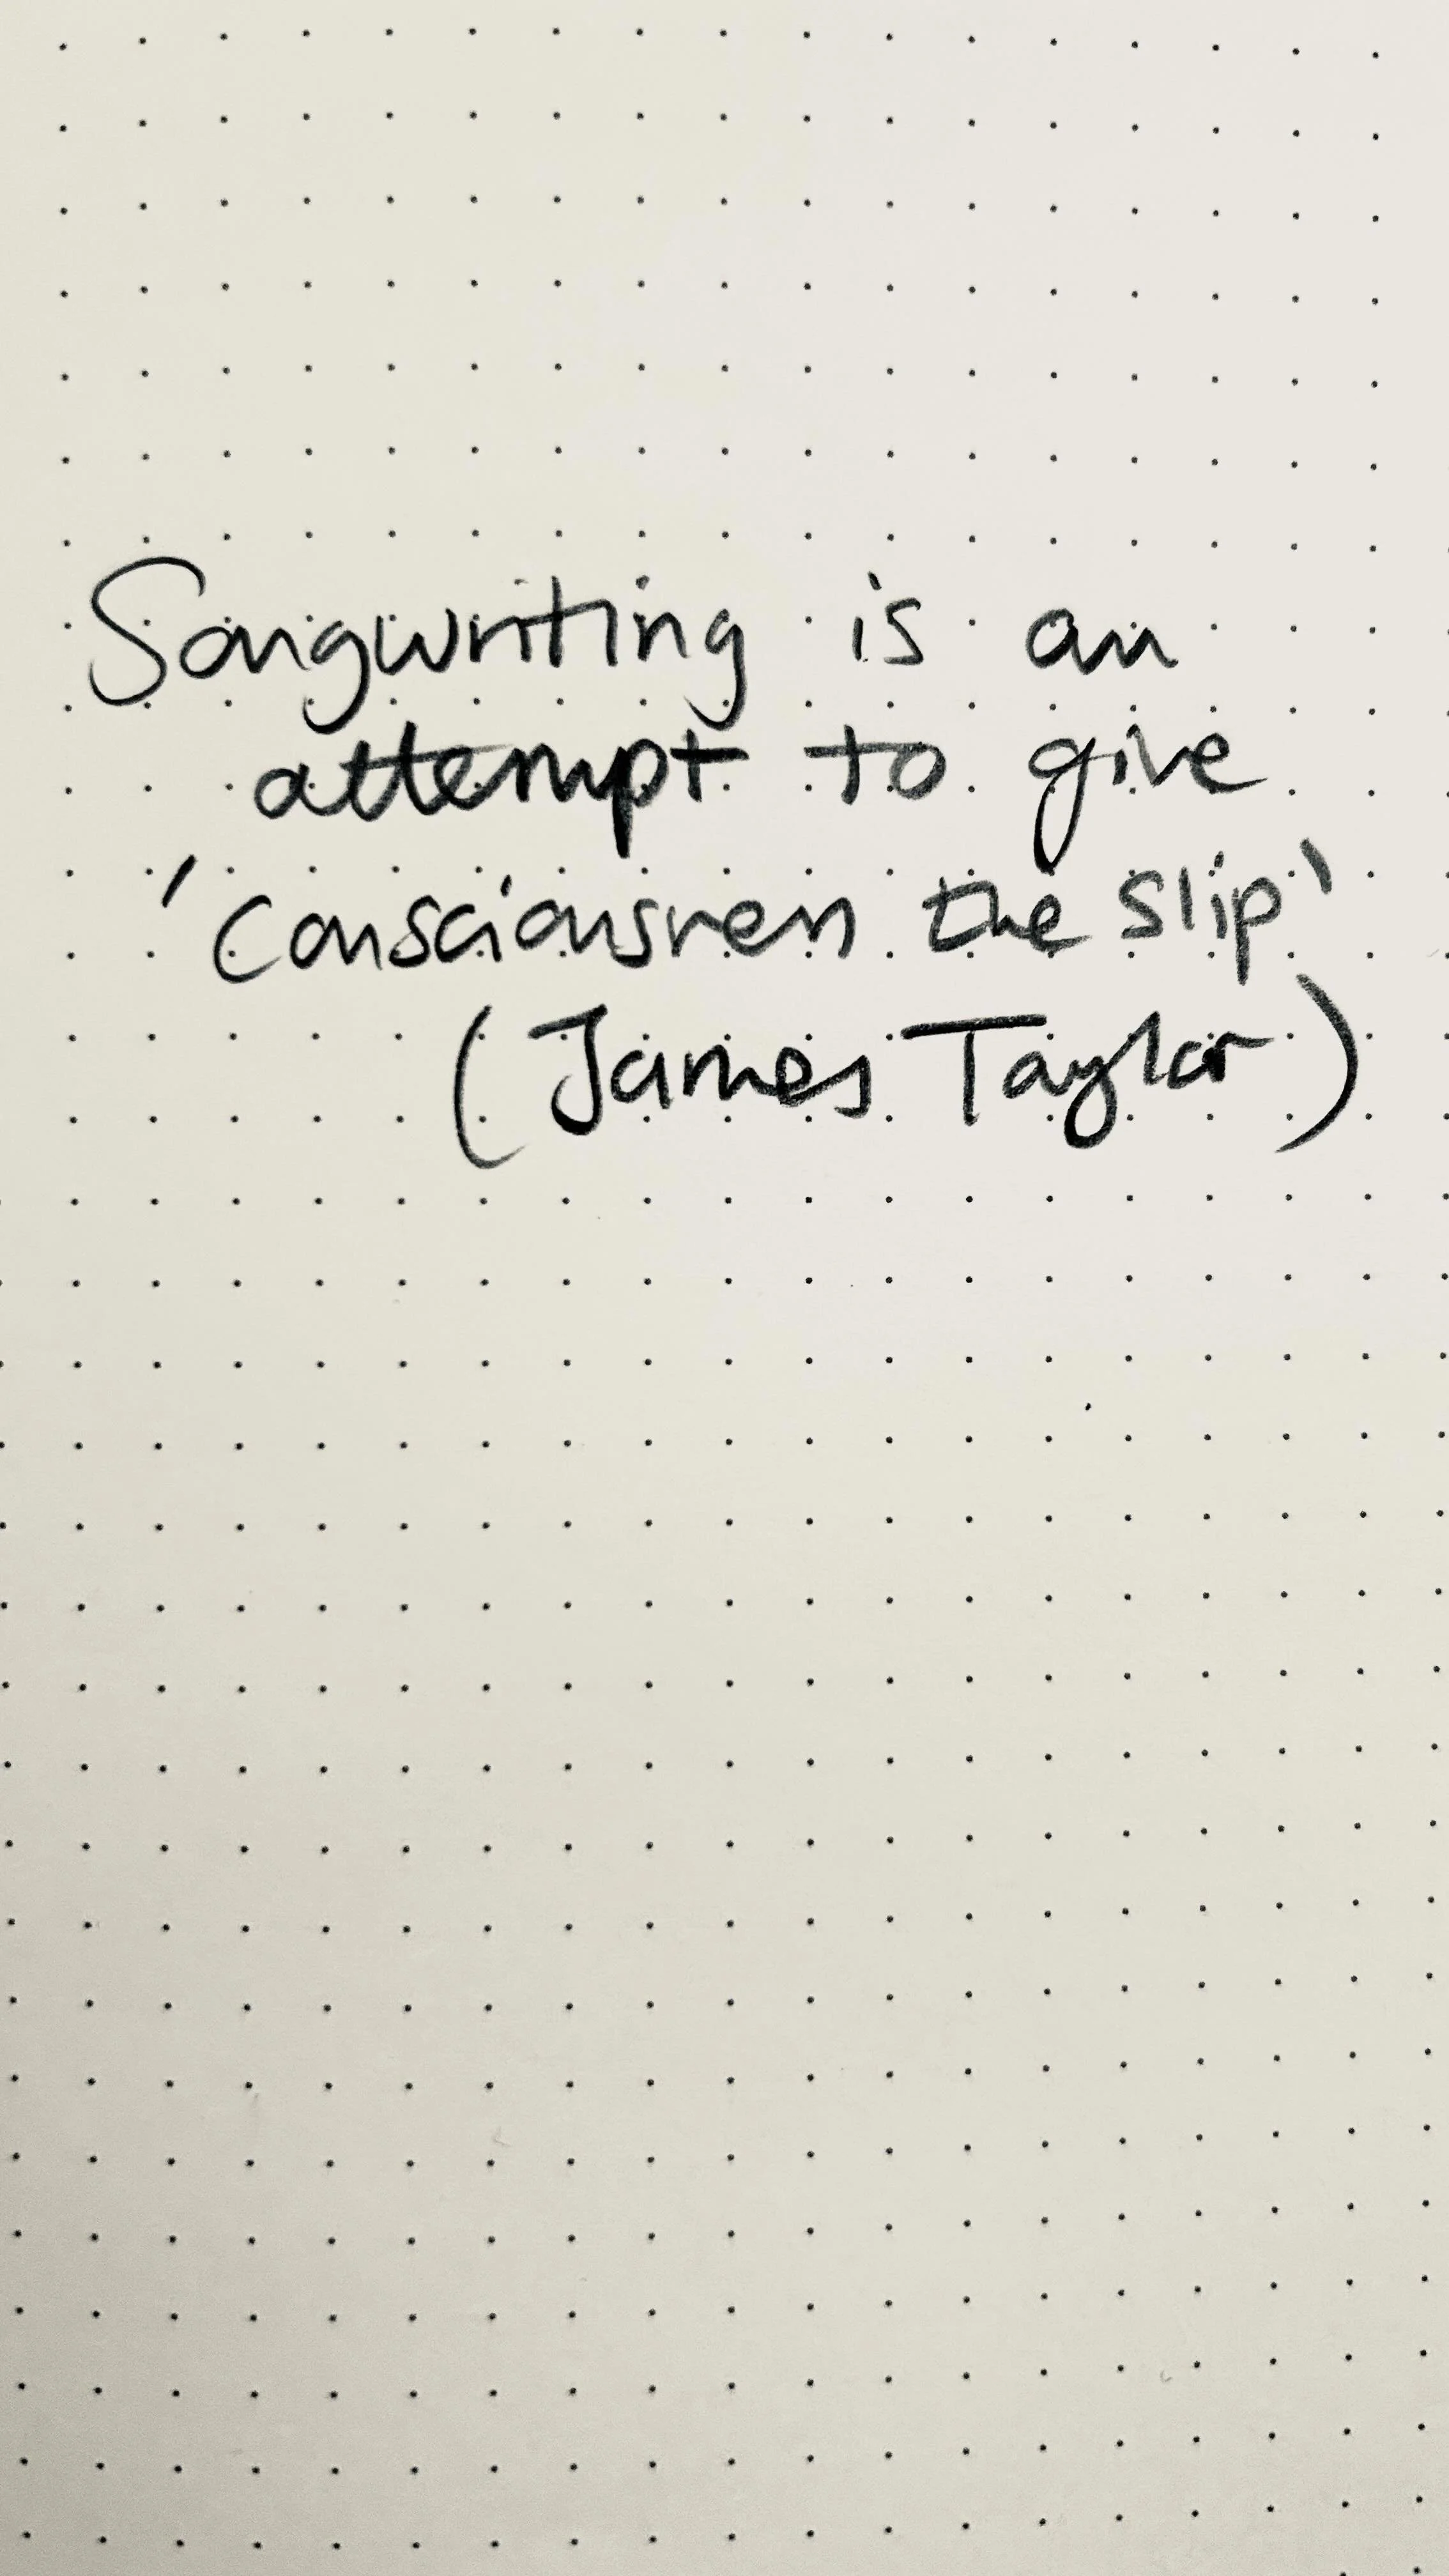 Songwriting is an
attempt to give
'consciousness the slip'
(James Taylor)